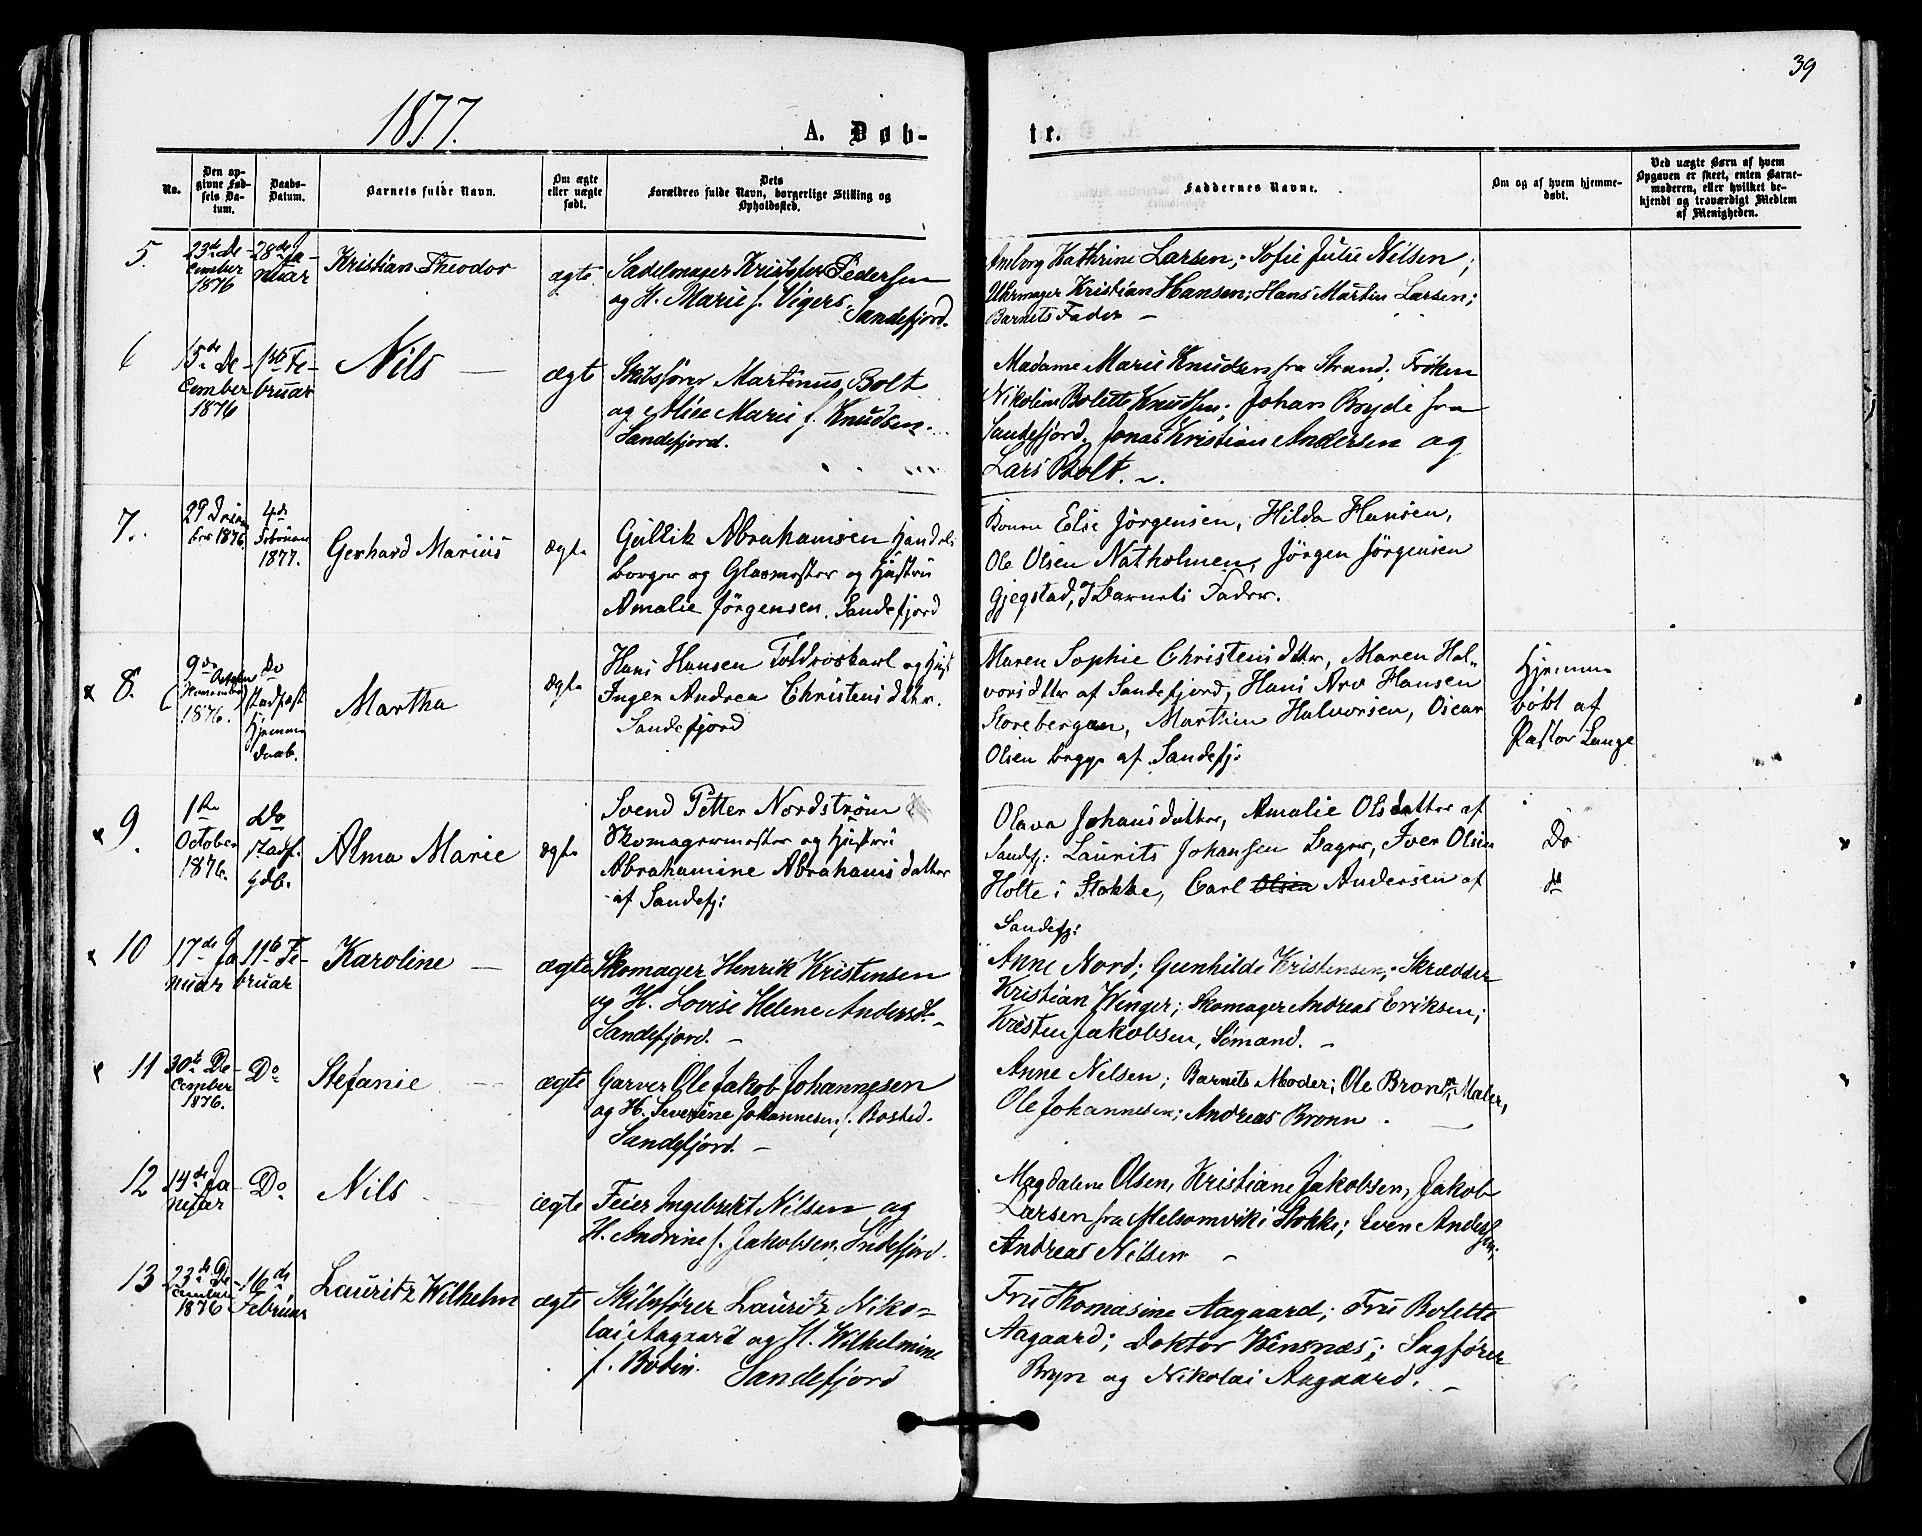 39
1877.
A. Døb-
te.
No.
Den op-
givne Fød-
sels Da-
tum.
Daabs-
Datum.
Barnets fulde Navn.
Om ægte
eller uægte
født.
Dets
Forældres fulde Navn, borgerlige Stilling og
Opholdssted.
Faddernes Navne.
Om og af hvem hjemme-
døbt.
Ved uægte Børn af hvem
Opgaven er skeet, enten Barne-
moderen, eller hvilket be-
kjendt og troværdigt Medlem
af Menigheden.
5.
23de De-
cember
1876
28de Ja-
nuar
Kristian Theodor
ægte
Sadelmager Kristofer Pedersen
og H. Marie f. Vigers
Sandefjord.
Kathrine Larsen; Sofie Julie Nilsen;
Uhrmager Kristian Hansen; Hans Martin Larsen;
Barnets Fader —
6
15de De-
cember
1876
1ste Fe-
bruar
Nils —
ægte
Skibsfører Martinus Bolt
og Alise Marie f. Knudsen.
Sandefjord.
Madame Marie Knudsen fra Strand; Frøken
Nikoline Bolette Knudsen; Johan Bryde fra
Sandefjord, Jonas Kristian Andersen og
Lars Bolt.
7.
29 Decem
ber 1876.
4de
Februar
1877.
Gerhard Marius
ægte
Gullik Abrahamsen Handels
borger og Glasmester og Hustru
Amalie Jörgensen. Sandefjord
Konen Else Jörgensen, Hilda Hansen,
Ole Olsen Natholmen, Jörgen Jörgensen
Gjegstad, Barnets Fader.
8.
9de October
(November)
1876.
Do
Stadfæst
Hjemme
daab.
Martha
ægte
Hans Hansen Toldroskarl og Hust
Inger Andrea Christensdatter.
Sandefjord
Maren Sophie Christensdatter, Maren Hal-
vorsdatter af Sandefjord, Hans Arv Hansen
Storebergan, Martin Halvorsen, Oscar
Olsen begge af Sandefj:
Hjemme
döbt af
Pastor Lange
9.
1ste
October
1876.
Do
stadf.
hdb.
Alma Marie
ægte
Svend Petter Nordström
Skomagermester og Hustru
Abrahamine Abrahamsdatter
af Sandefj:
Olava Johansdatter, Amalie Olsdatter af
Sandefj: Laurits Johansen Bager, Iver Olsen
Holte i Stokke, Carl Olsen Andersen af
Sandefj:
Do
do
10
17de Ja-
nuar
11te Fe-
bruar
Karoline —
ægte
Skomager Henrik Kristensen
og H. Lovise Helene Andersd.
Sandefjord. —
Anne Nord; Gunhilde Kristensen; Skrædder
Kristian Wenger; Skomager Andreas Eriksen;
Kristen Jakobsen, Sömand. —
11
30te De-
cember
1876.
Do
Stefanie
ægte
Garver Ole Jakob Johannesen
og H. Severine Johannesen f. Bosted.
Sandefjord. —
Anne Nilsen; Barnets Moder; Ole Bronn, Maler,
Ole Johannesen; Andreas Bronn.
12
14de Ja-
nuar
Do
Nils
ægte
Feier Ingebrikt Nilsen og
H. Andrine f. Jakobsen, Sandefjord.
Magdalene Olsen, Kristiane Jakobsen, Jakob
Larsen fra Melsomvik i Stokke; Even Anders-
sen;
Andreas Nilsen —
13
23de De-
cember
1876
16de
Februar
Lauritz Wilhelm
ægte
Skibsfører Lauritz Niko-
lai Aagaard og H. Wilhelmine
f. Bødin. Sandefjord
Fru Thomasine Aagaard; Fru Bolette
Aagaard; Doktor Wensnæs; Sagfører
Bryn og Nikolai Aagaard. —